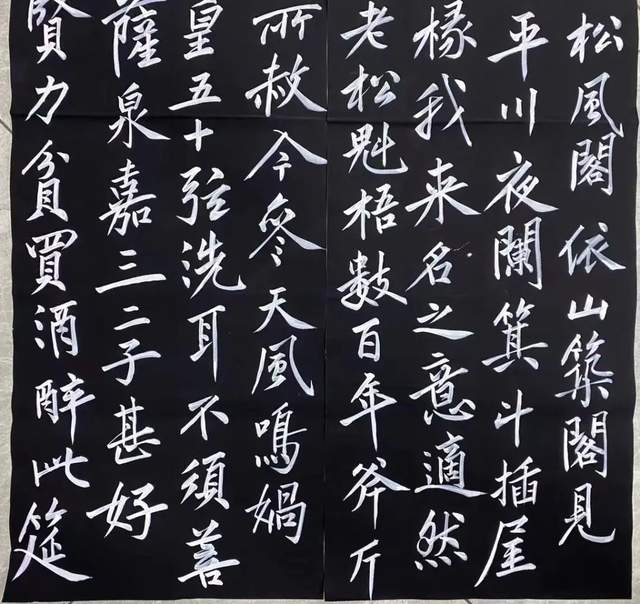 松風閣依山築閣見
平川夜闌箕斗插屋
椽我来名之意適然
老松魁梧數百年斧斤
所赦今參天風鳴媧
皇五十弦洗耳不須菩
薩泉嘉三二子甚好
賢力貧買酒醉此筵